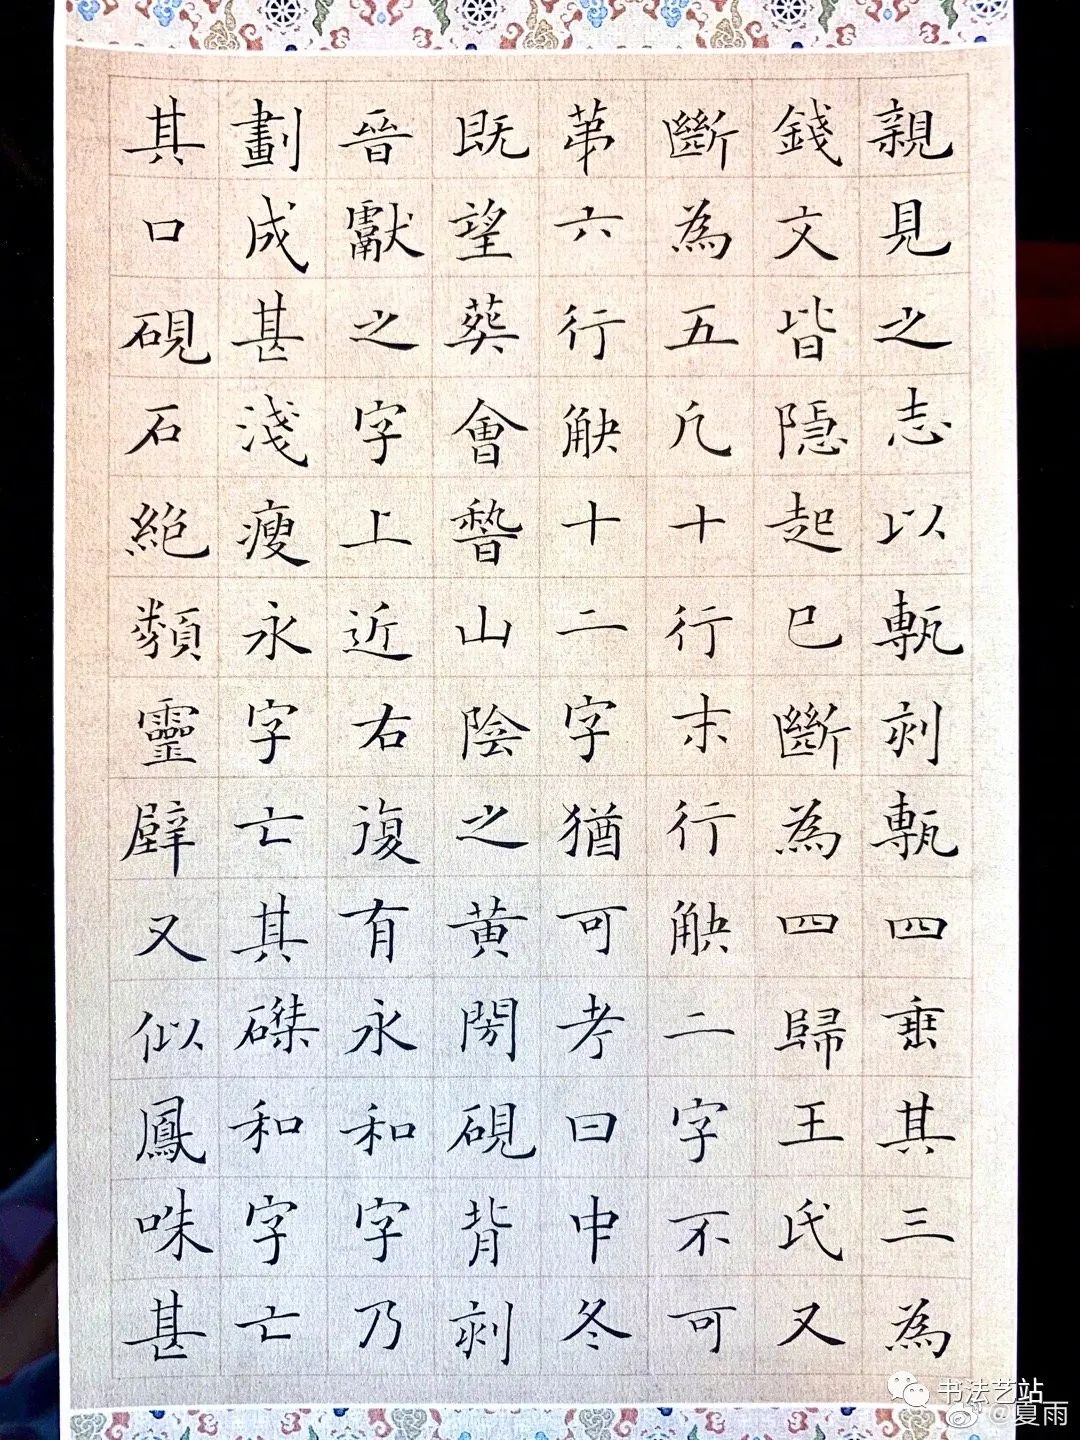 親見之志以甎刻甎四垂其三為
錢文皆隱起已斷為四歸王氏又
斷為五凡十行末行觖二字不可
苐六行觖十二字猶可考曰中冬
既望葵會嵆山陰之黄閍硯背刻
晉獻之字上近右復有永和字乃
劃成甚淺瘦永字亡其磔和字亡
其口硯石絶類靈壁又似鳳咮甚
书法艺站
@夏雨